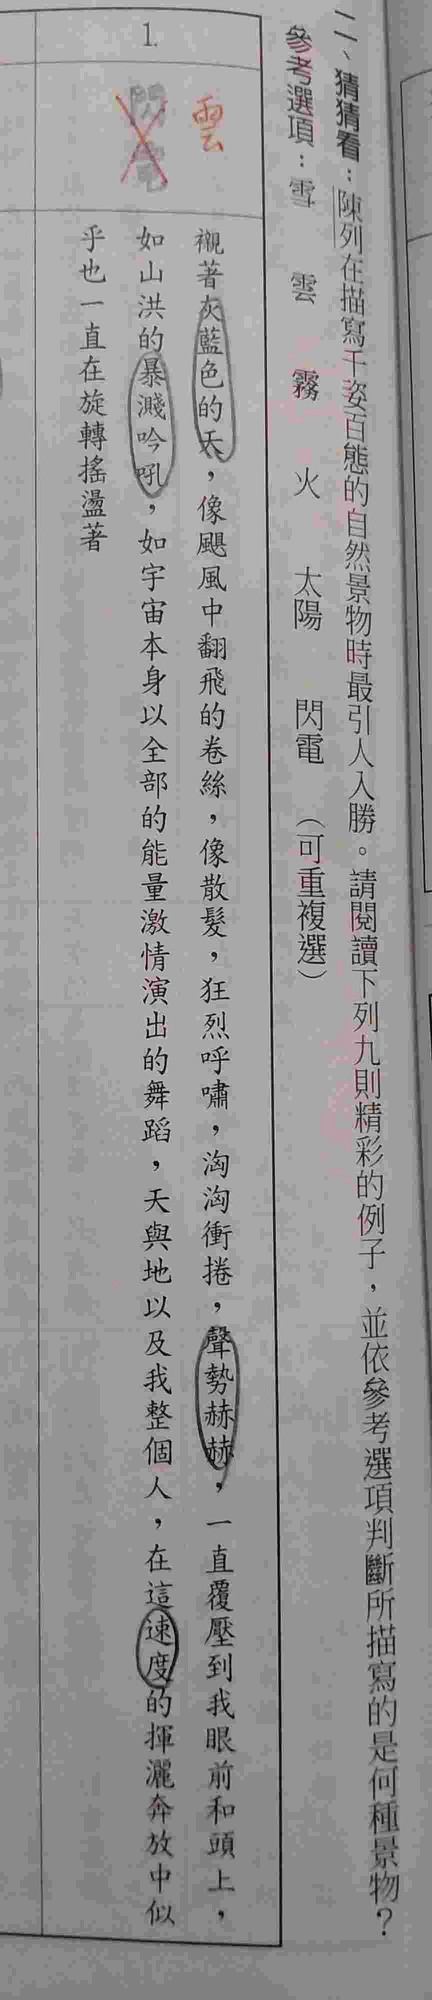 二、猜猜看：陳列在描寫千姿百態的自然景物時最引人入勝。請閱讀下列九則精彩的例子，並依參考選項判斷所描寫的是何種景物？
參考選項：雪　雲　霧　火　太陽　閃電　（可重複選）
1.
雲
閃電
襯著灰藍色的天，像颶風中翻飛的卷絲，像散髮，狂烈呼嘯，洶洶衝捲，聲勢赫赫，一直覆壓到我眼前和頭上，
如山洪的暴濺吟吼，如宇宙本身以全部的能量激情演出的舞蹈，天與地以及我整個人，在這速度的揮灑奔放中似
乎也一直在旋轉搖盪著